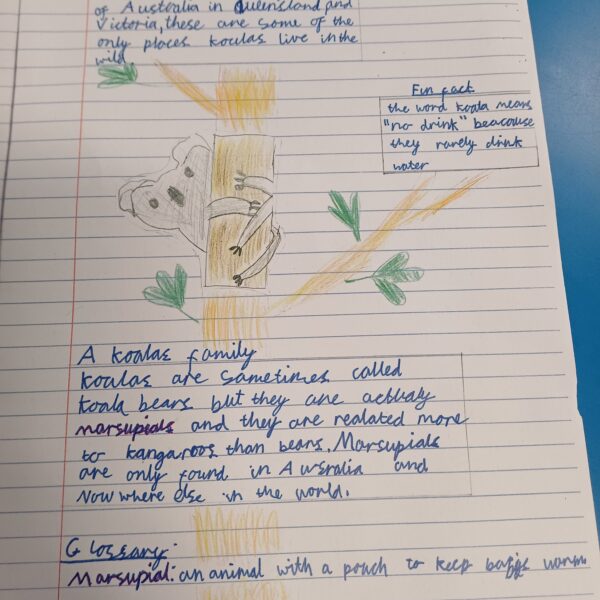 of Australia in Queensland and
Victoria, these are some of the
only places koalas live in the
wild.
Fun fact
the word koala means
"no drink" beacause
they rarely drink
water
A koalas family
koalas are sometimes called
koala bears but they are actualy
marsupials and they are realated more
to kangaroos than bears. Marsupials
are only found in Australia and
Now where else in the world.
Glossary:
Marsupial: an animal with a pouch to keep warm